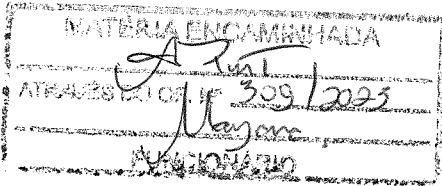 MATÉRIA ENCAMINHADA
A
ATRAVÉS DO OF. Nº 309/2023
Mayara
FUNCIONÁRIO